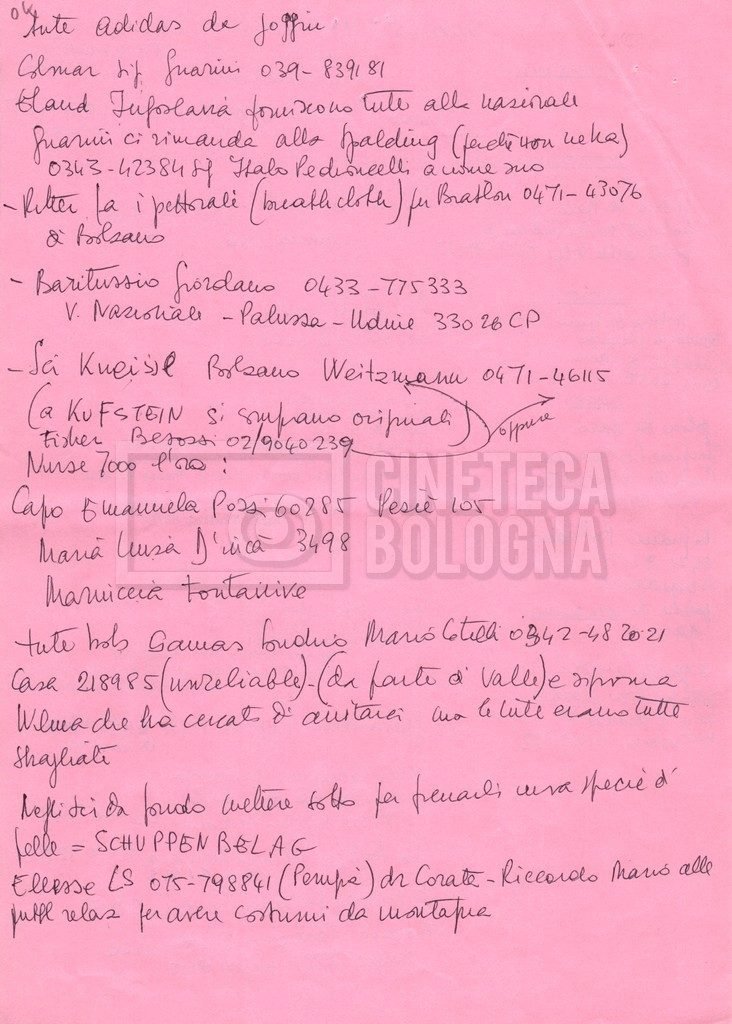 OK
Tute adidas da joggin
Colmar sig Guarini 039-839181
Eland Jugoslavia forniscono tute alla nazionale
Guarini ci rimanda alla Spalding (perché non ne ha)
0343-42384 Sg Italo Pedroncelli a nome suo
- Ritter fa i pettorali (breath cloth) per Biathlon 0471-43076
di Bolzano
- Baritussio Giordano 0433-775333
V. Nazionale - Paluzza - Udine 33026 CP
- Sci Kneissl Bolzano Weitzmann 0471-46115
(a KUFSTEIN si comprano originali) oppure
Fisher Besozzi 02/9040239
Nurse 7000 l'ora:
CINETECA
BOLOGNA
Capo Emanuela Pozzi 60285 105
Maria Luisa 3498
tute Sondrio Mario Cotelli 0342-482021
Casa 218985 (unreliable) - (da parte di Valle) e
Wilma che ha cercato di aiutarci ma le tute erano tutte
sbagliate
Negli sci da fondo mettere sotto per frenarli una specie di
pelle = SCHUPPENBELAG
Ellesse LS 075-798841 (Perugia) di - Riccardo Mario alle
pubbl relaz per avere costumi da montagna